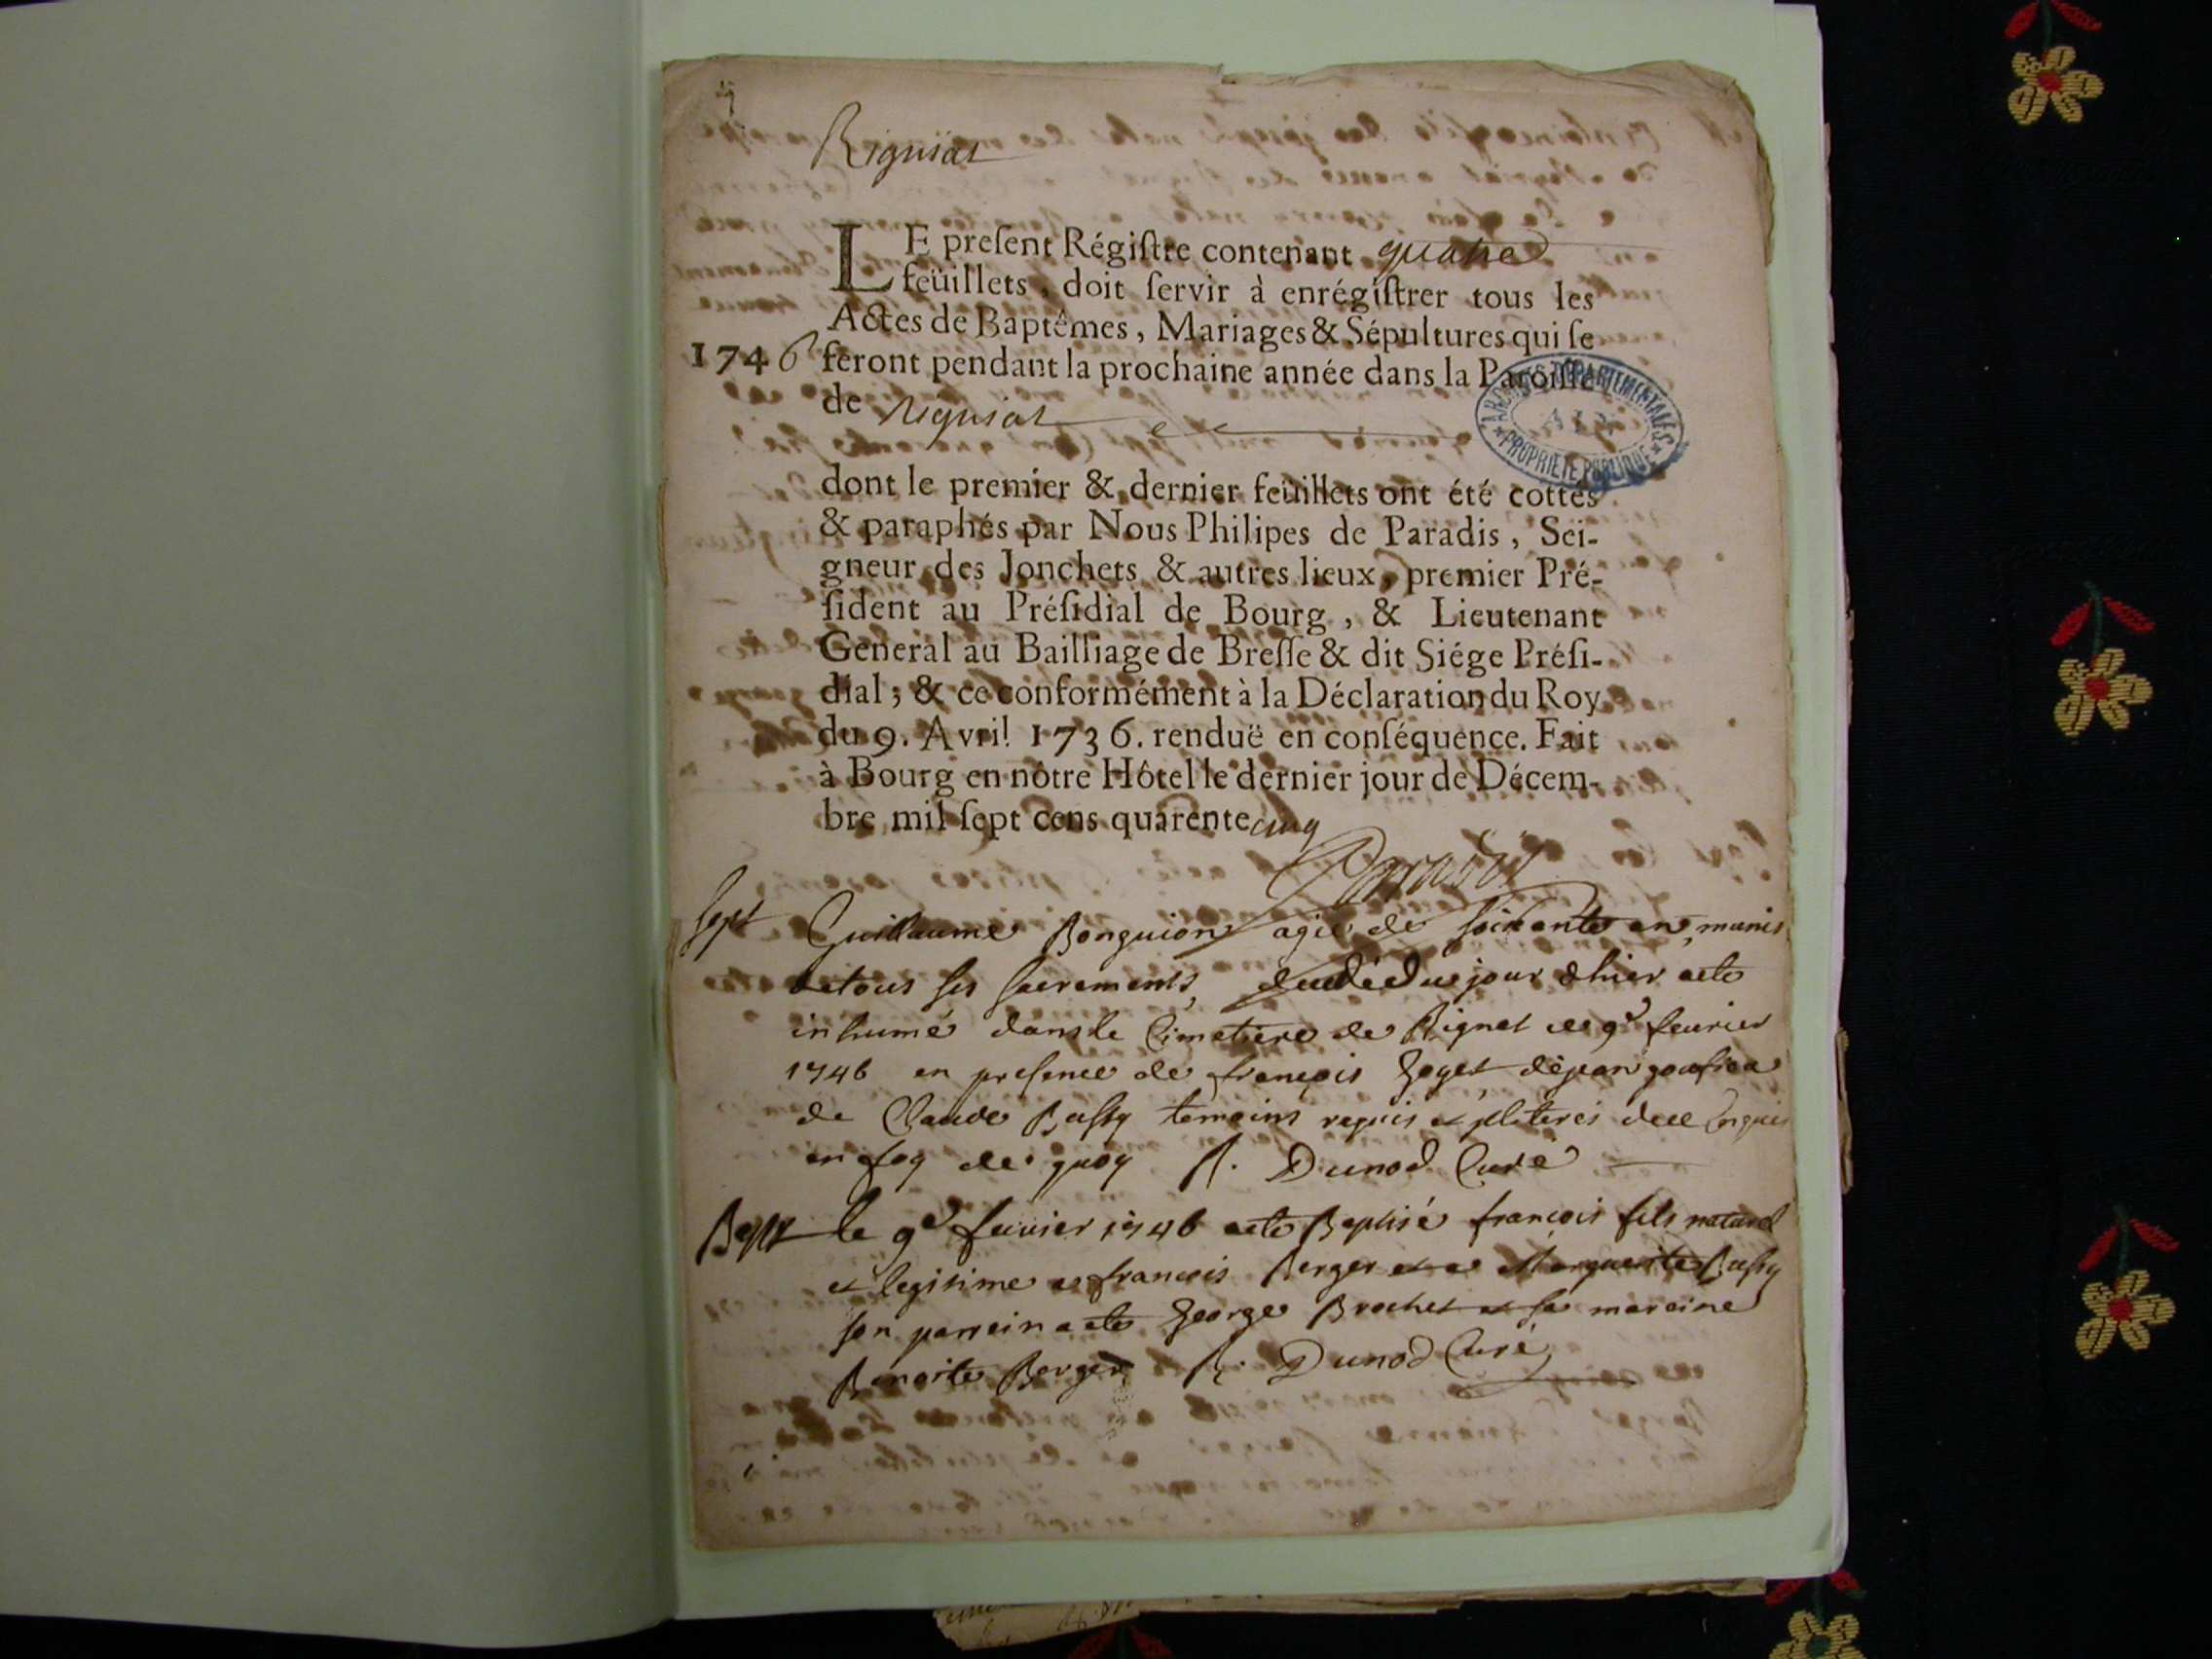 Rigniat
LE preſent Régiſtre contenant quatre
feüillets, doit ſervir à enrégiſtrer tous les
Actes de Baptêmes, Mariages & Sépultures qui ſe
1746 feront pendant la prochaine année dans la Paroiſſe
de rigniat
ARCHIVES DÉPARTEMENTALES
AIN
PROPRIÉTÉ PUBLIQUE
dont le premier & dernier feüillets ont été cottés
& paraphés par Nous Philipes de Paradis, Sei-
gneur des Jonchets & autres lieux, premier Pré-
ſident au Préſidial de Bourg, & Lieutenant
General au Bailliage de Breſſe & dit Siége Préſi-
dial; & ce conformément à la Déclaration du Roy
du 9. Avril 1736. renduë en conſéquence. Fait
à Bourg en nôtre Hôtel le dernier jour de Décem-
bre mil ſept cens quarente cinq
Paradis
Sept Guillaume Bonguion agié de soixante an, munis
de tous ses sacrements, jour dhier aeté
inhumé dans le Cimetiere de Rignat le 9e feurier
1746 en presence de françois Goyet
de Claude Bussy temoins requis
en foy de quoy R. Dunod Curé
Bapt le 9e feurier 1746 aeté Baptisé francois fils naturel
et legitime de francois Berger et de Marguerite Bussy
son parrein a eté George Brochet et sa mareine
Benoite Berger R. Dunod Curé